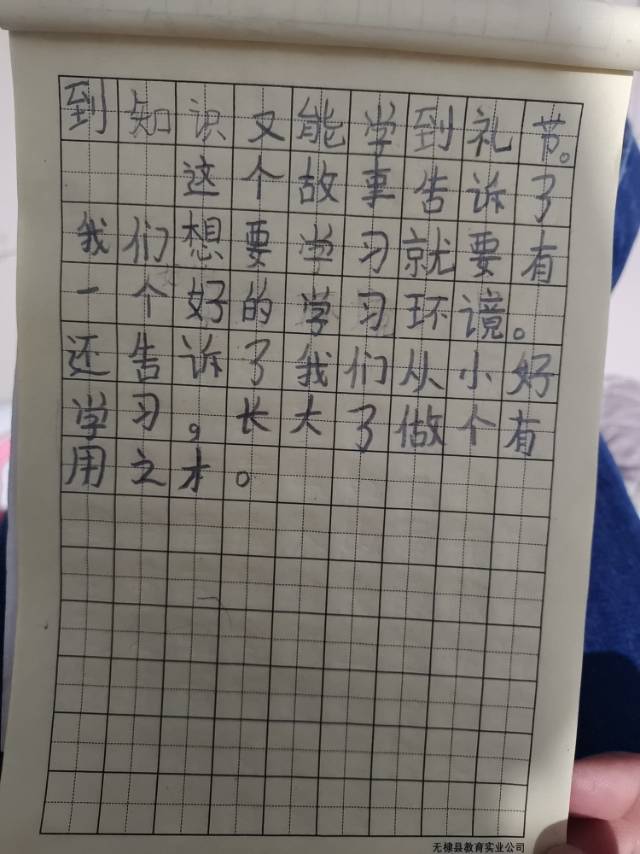 到知识又能学到礼节。
这个故事告诉了
我们想要学习就要有
一个好的学习环境。
还告诉了我们从小好
学习，长大了做个有
用之才。
无棣县教育实业公司